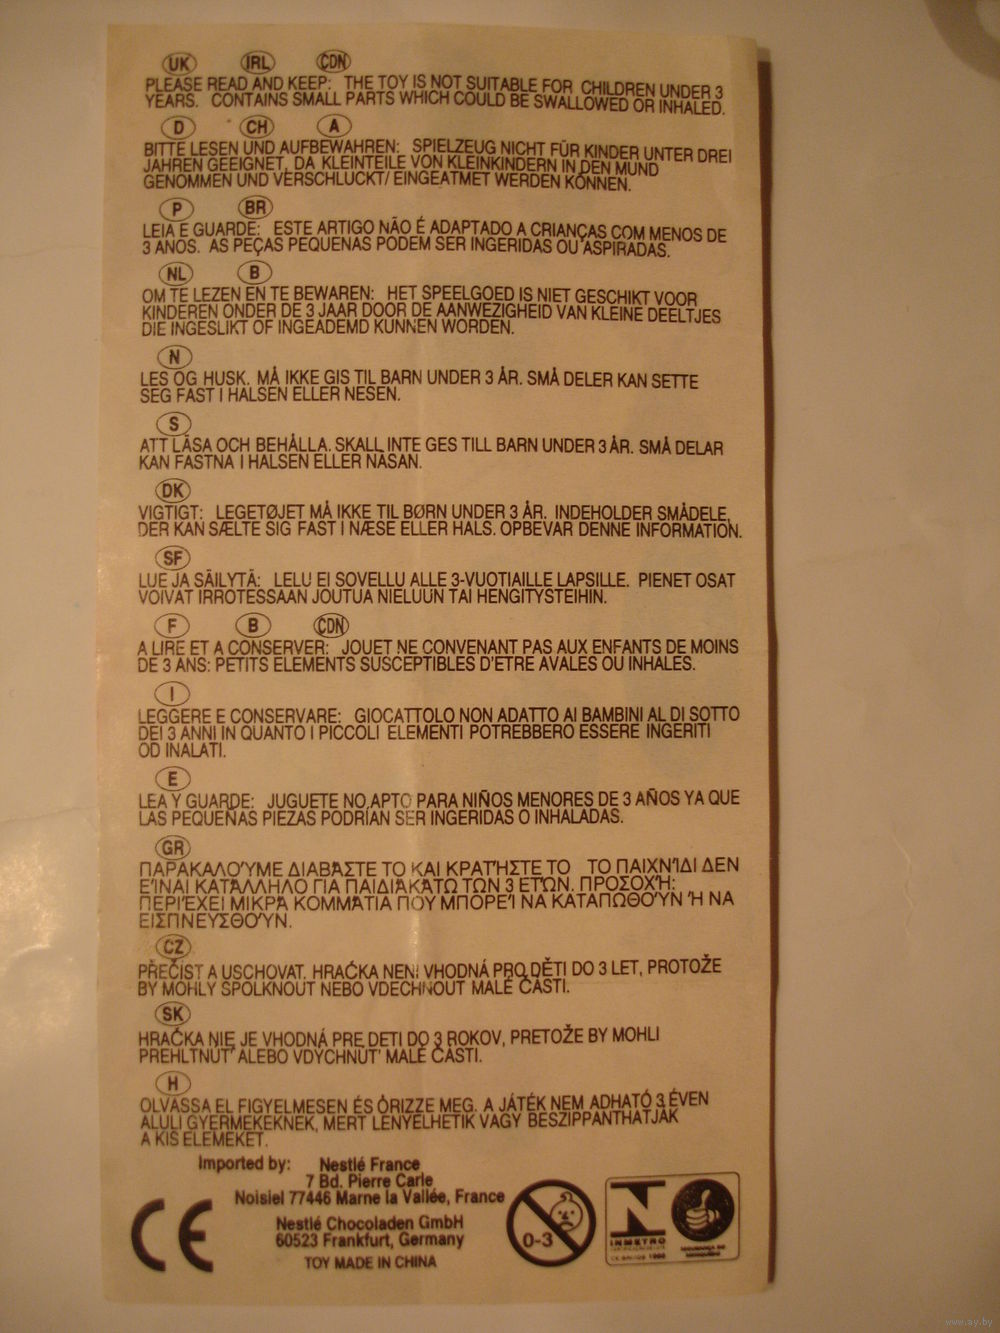 UK IRL CDN
PLEASE READ AND KEEP: THE TOY IS NOT SUITABLE FOR CHILDREN UNDER 3
YEARS. CONTAINS SMALL PARTS WHICH COULD BE SWALLOWED OR INHALED.
D CH A
BITTE LESEN UND AUFBEWAHREN: SPIELZEUG NICHT FÜR KINDER UNTER DREI
JAHREN GEEIGNET, DA KLEINTEILE VON KLEINKINDERN IN DEN MUND
GENOMMEN UND VERSCHLUCKT/ EINGEATMET WERDEN KÖNNEN.
P BR
LEIA E GUARDE: ESTE ARTIGO NÃO É ADAPTADO A CRIANÇAS COM MENOS DE
3 ANOS. AS PEÇAS PEQUENAS PODEM SER INGERIDAS OU ASPIRADAS.
NL B
OM TE LEZEN EN TE BEWAREN: HET SPEELGOED IS NIET GESCHIKT VOOR
KINDEREN ONDER DE 3 JAAR DOOR DE AANWEZIGHEID VAN KLEINE DEELTJES
DIE INGESLIKT OF INGEADEMD KUNNEN WORDEN.
N
LES OG HUSK. MÅ IKKE GIS TIL BARN UNDER 3 ÅR. SMÅ DELER KAN SETTE
SEG FAST I HALSEN ELLER NESEN.
S
ATT LÄSA OCH BEHÅLLA. SKALL INTE GES TILL BARN UNDER 3 ÅR. SMÅ DELAR
KAN FASTNA I HALSEN ELLER NASAN.
DK
VIGTIGT: LEGETØJET MÅ IKKE TIL BØRN UNDER 3 ÅR. INDEHOLDER SMÅDELE,
DER KAN SÆLTE SIG FAST I NÆSE ELLER HALS. OPBEVAR DENNE INFORMATION.
SF
LUE JA SÄILYTÄ: LELU EI SOVELLU ALLE 3-VUOTIAILLE LAPSILLE. PIENET OSAT
VOIVAT IRROTESSAAN JOUTUA NIELUUN TAI HENGITYSTEIHIN.
F B CDN
A LIRE ET A CONSERVER: JOUET NE CONVENANT PAS AUX ENFANTS DE MOINS
DE 3 ANS: PETITS ELEMENTS SUSCEPTIBLES D'ETRE AVALES OU INHALES.
I
LEGGERE E CONSERVARE: GIOCATTOLO NON ADATTO AI BAMBINI AL DI SOTTO
DEI 3 ANNI IN QUANTO I PICCOLI ELEMENTI POTREBBERO ESSERE INGERITI
OD INALATI.
E
LEA Y GUARDE: JUGUETE NO APTO PARA NIÑOS MENORES DE 3 AÑOS YA QUE
LAS PEQUEÑAS PIEZAS PODRÍAN SER INGERIDAS O INHALADAS.
GR
ΠΑΡΑΚΑΛΟΎΜΕ ΔΙΑΒΆΣΤΕ ΤΟ ΚΑΙ ΚΡΑΤΉΣΤΕ ΤΟ ΤΟ ΠΑΙΧΝΊΔΙ ΔΕΝ
ΕΊΝΑΙ ΚΑΤΆΛΛΗΛΟ ΓΙΑ ΠΑΙΔΙΆ ΚΆΤΩ ΤΩΝ 3 ΕΤΏΝ. ΠΡΟΣΟΧΉ:
ΠΕΡΙΈΧΕΙ ΜΙΚΡΆ ΚΟΜΜΆΤΙΑ ΠΟΥ ΜΠΟΡΕΊ ΝΑ ΚΑΤΑΠΩΘΟΎΝ Ή ΝΑ
ΕΙΣΠΝΕΥΣΘΟΎΝ.
CZ
PŘEČÍST A USCHOVAT. HRAČKA NENI VHODNÁ PRO DĚTI DO 3 LET, PROTOŽE
BY MOHLY SPOLKNOUT NEBO VDECHNOUT MALÉ ČÁSTI.
SK
HRAČKA NIE JE VHODNÁ PRE DETI DO 3 ROKOV, PRETOŽE BY MOHLI
PREHLTNÚT' ALEBO VDÝCHNÚT' MALÉ ČASTI.
H
OLVASSA EL FIGYELMESEN ÉS ŐRIZZE MEG. A JÁTÉK NEM ADHATÓ 3 ÉVEN
ALULI GYERMEKEKNEK, MERT LENYELHETIK VAGY BESZIPPANTHATJÁK
A KIS ELEMEKET.
Imported by: Nestlé France
7 Bd. Pierre Carle
Noisiel 77446 Marne la Vallée, France
Nestlé Chocoladen GmbH
60523 Frankfurt, Germany
TOY MADE IN CHINA
CE
0-3
INMETRO
www.ay.by